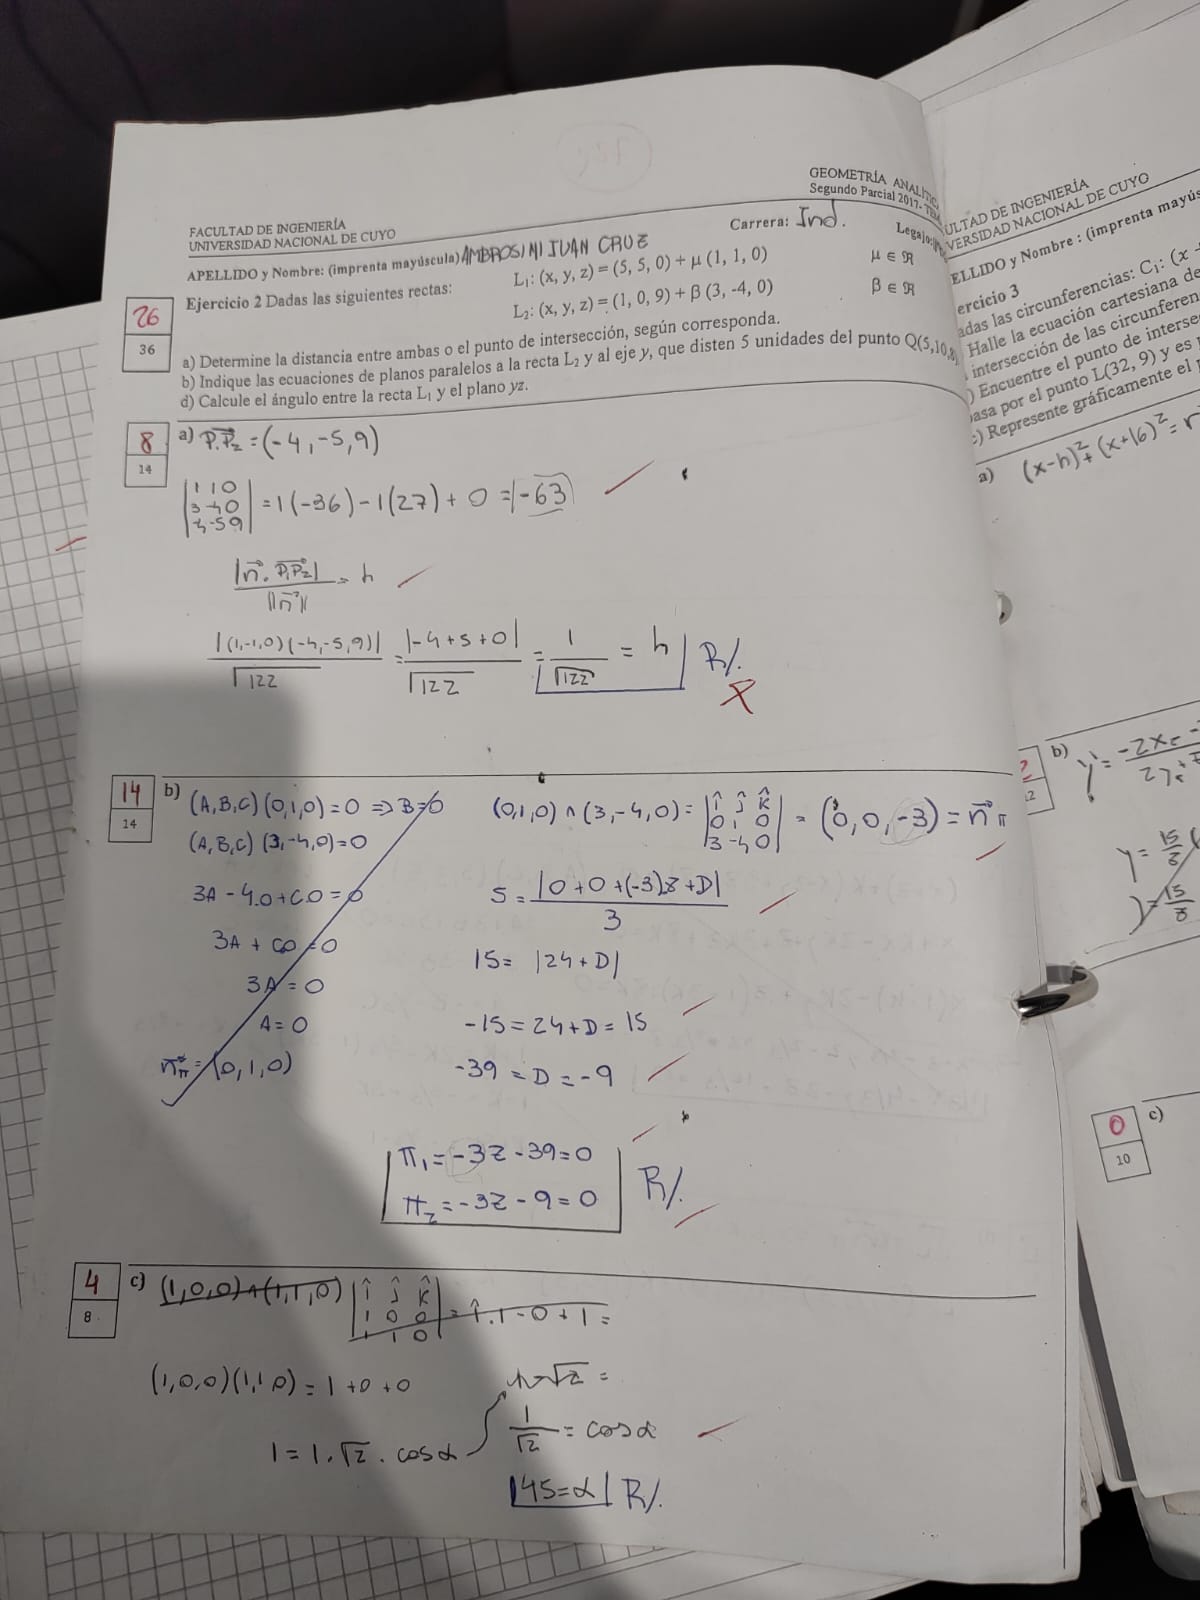 GEOMETRÍA ANALÍTICA
Segundo Parcial 2017- TEMA
FACULTAD DE INGENIERÍA
UNIVERSIDAD NACIONAL DE CUYO
Carrera: Ind.
Legajo:
APELLIDO y Nombre: (imprenta mayúscula) AMBROSINI JUAN CRUZ
26
36
Ejercicio 2 Dadas las siguientes rectas:
L₁: (x, y, z) = (5, 5, 0) + μ (1, 1, 0) μ ∈ ℜ
L₂: (x, y, z) = (1, 0, 9) + β (3, -4, 0) β ∈ ℜ
a) Determine la distancia entre ambas o el punto de intersección, según corresponda.
b) Indique las ecuaciones de planos paralelos a la recta L₂ y al eje y, que disten 5 unidades del punto Q(5,10,8)
d) Calcule el ángulo entre la recta L₁ y el plano yz.
8
14
a) P₁P₂ = (-4, -5, 9)
|1 1 0|
|3 -4 0| = 1(-36) - 1(27) + 0 = |-63|
|-4 -5 9|
|n⃗ . P₁P₂| / ||n⃗|| = h
|(1,-1,0)(-4,-5,9)| / √122 = |-4+5+0| / √122 = 1 / √122 = h R/.
14
14
b) (A,B,C)(0,1,0)=0 ⇒ B=0
(A,B,C)(3,-4,0)=0
3A - 4.0 + C0 = 0
3A + C0 = 0
3A = 0
A = 0
n⃗π = (0,1,0)
(0,1,0) ∧ (3,-4,0) = |î ĵ k̂|
|0 1 0|
|3 -4 0| = (0,0,-3) = n⃗π
5 = |0+0+(-3).8+D| / 3
15 = |24+D|
-15 = 24+D = 15
-39 = D = -9
π₁ = -3z - 39 = 0
π₂ = -3z - 9 = 0 R/.
4
8
c) (1,0,0) ∧ (1,1,0) |î ĵ k̂|
|1 0 0|
|1 1 0| = î.1 - 0 + 1 =
(1,0,0)(1,1,0) = 1+0+0
1 = 1.√2 . cosα
1/√2 = cosα
45=α R/.
FACULTAD DE INGENIERÍA
UNIVERSIDAD NACIONAL DE CUYO
APELLIDO y Nombre : (imprenta mayús
ercicio 3
adas las circunferencias: C₁: (x
Halle la ecuación cartesiana de
intersección de las circunferen
) Encuentre el punto de interse
pasa por el punto L(32, 9) y es
c) Represente gráficamente el
a) (x-h)² + (x+16)² = r
b)
12
0
10
c)